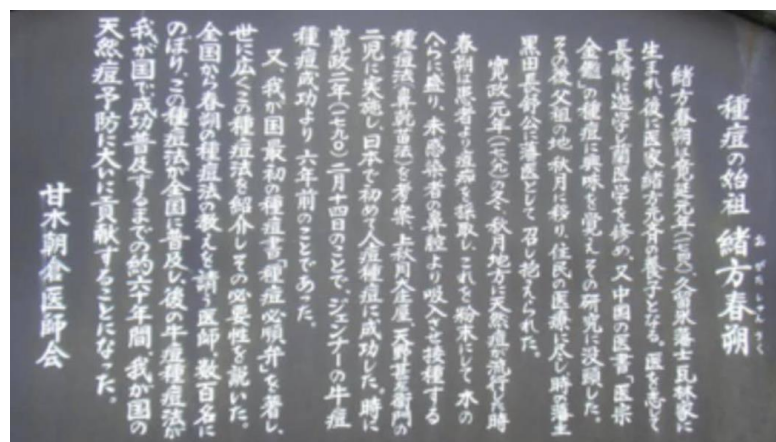 種痘の始祖 緒方春朔
おがたしゅんさく
緒方春朔は寛延元年(一七四八)、久留米藩士瓦林家に
生まれ、後に医家緒方元斉の養子となる。医を志して
長崎に遊学し蘭医学を修め、又中国の医書「医宗
金鑑」の種痘に興味を覚えその研究に没頭した。
その後、父祖の地秋月に移り、住民の医療に尽し時の藩主
黒田長舒公に藩医として召し抱えられた。
寛政元年(一七八九)の冬、秋月地方に天然痘が流行した時
春朔は患者より痘痂を採取し、これを粉末にして木の
へらに盛り、未感染者の鼻腔より吸入させ接種する
種痘法(鼻乾苗法)を考案、上秋月大庄屋、天野甚左衛門の
二児に実施し、日本で初めて人痘種痘に成功した。時に
寛政二年(一七九〇)二月十四日のことで、ジェンナーの牛痘
種痘成功より六年前のことであった。
又、我が国最初の種痘書「種痘必順弁」を著し、
世に広くこの種痘法を紹介しその必要性を説いた。
全国から春朔の種痘法の教えを請う医師、数百名に
のぼり、この種痘法が全国に普及し後の牛痘種痘法が
我が国で成功普及するまでの約六十年間、我が国の
天然痘予防に大いに貢献することになった。
甘木朝倉医師会